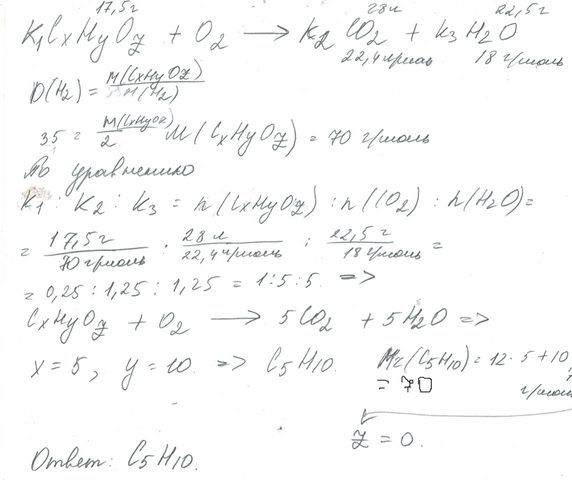 17,5г 28л 22,5г
K₁CxHyOz + O₂ → K₂CO₂ + K₃H₂O
22,4 л/моль 18 г/моль
D(H₂) = M(CxHyOz) / M(H₂)
35 = M(CxHyOz) / 2 M(CxHyOz) = 70 г/моль
По уравнению
K₁ : K₂ : K₃ = n(CxHyOz) : n(CO₂) : n(H₂O) =
= 17,5г / 70 г/моль : 28 л / 22,4 л/моль : 22,5г / 18 г/моль =
= 0,25 : 1,25 : 1,25 = 1:5:5. =>
CxHyOz + O₂ → 5CO₂ + 5H₂O =>
x = 5, y = 10. => C₅H₁₀. Mr(C₅H₁₀) = 12·5+10,
= 70 г/моль
z = 0.
Ответ: C₅H₁₀.